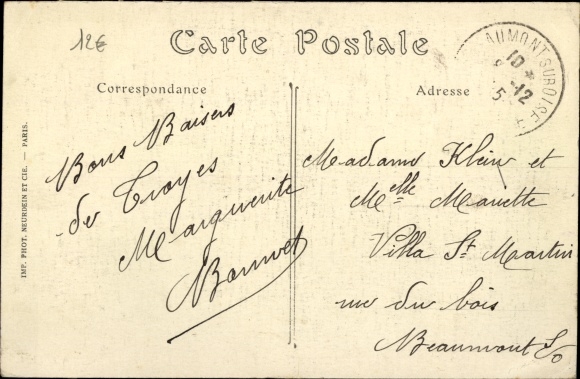 12€
Carte Postale
Correspondance
Adresse
Bons Baisers
de Troyes
Marguerite
Madame Klein et
Melle Mariette
Villa St Martin
rue du bois
Beaumont S/O
AUMONT SUR OISE
10 *
12
5
IMP. PHOT. NEURDEIN ET CIE. — PARIS.